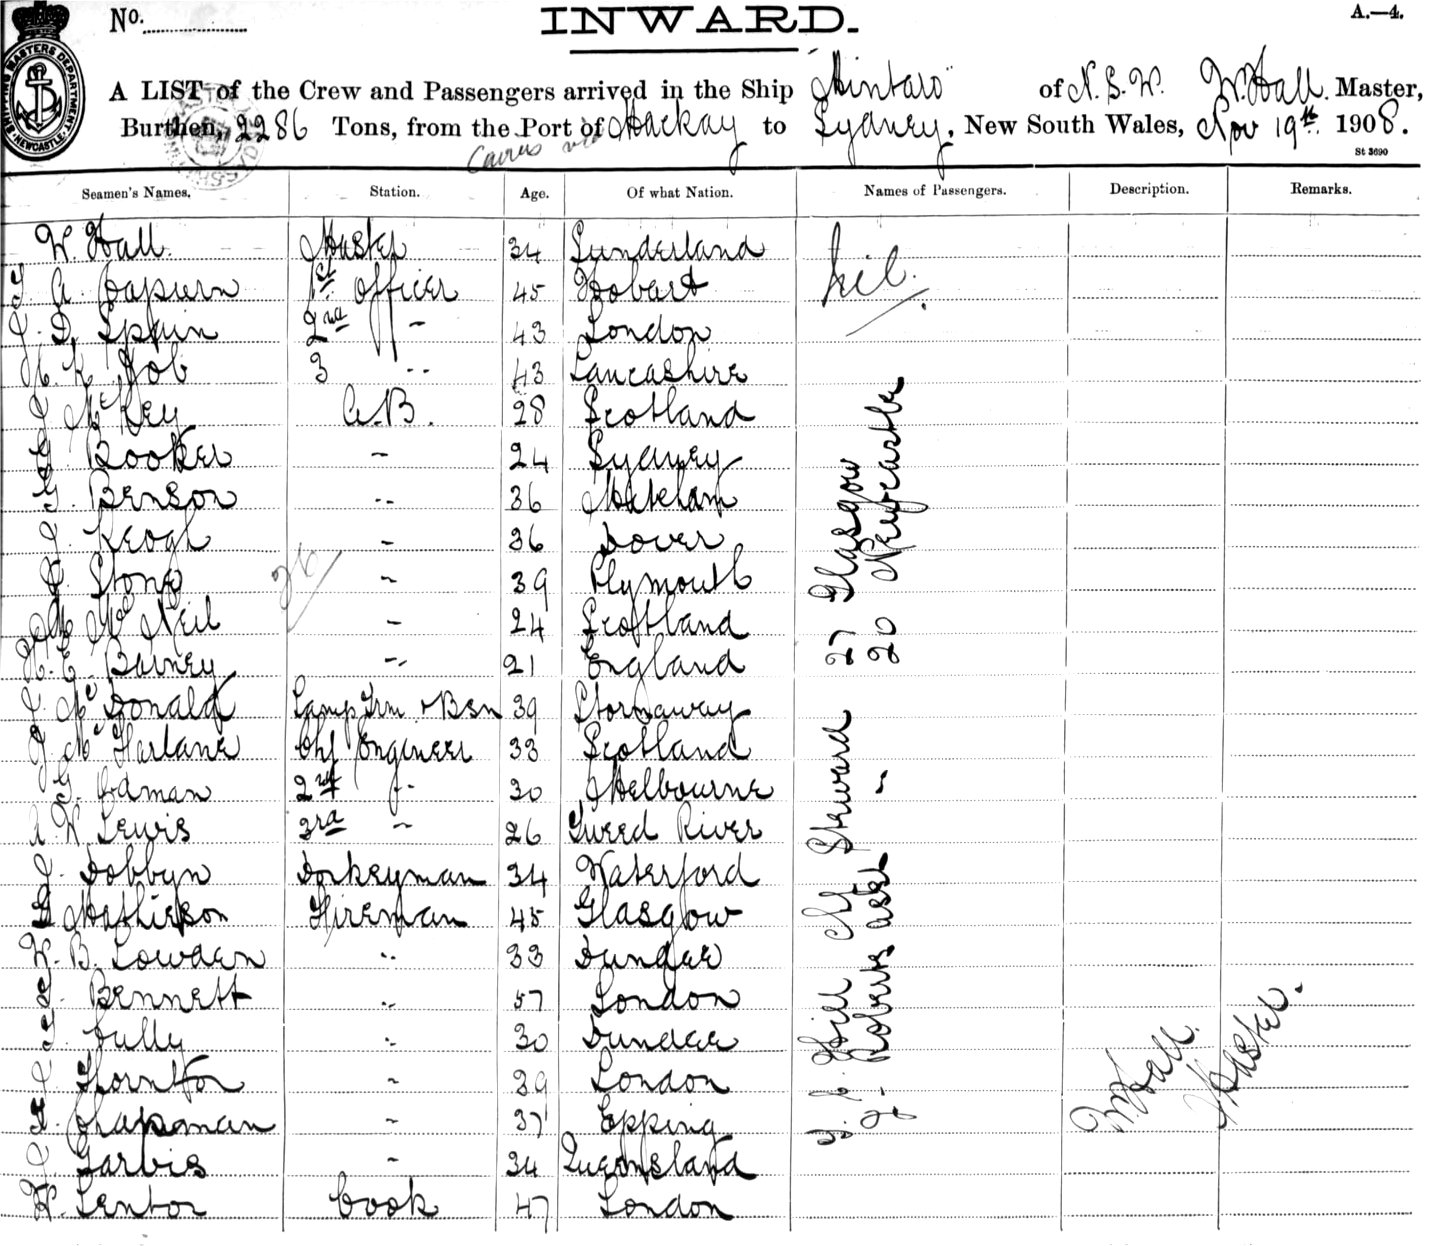 No.
INWARD.
A.—4.
A LIST of the Crew and Passengers arrived in the Ship Mintaro of N.S.W. W. Hall. Master,
Burthen, 2286 Tons, from the Port of Mackay to Sydney, New South Wales, Nov 19th 1908.
Cairns via
St 3690
SHIPPING MASTERS DEPARTMENT NEWCASTLE
Seamen's Names. Station. Age. Of what Nation. Names of Passengers. Description. Remarks.
W. Hall. Master 34 Sunderland Nil.
A. 1st Officer 45 Hobart
D. Spain 2nd - 43 London
H. K. Job 3 -- 43 Lancashire
J McKey A.B. 28 Scotland
G. Booker - 24 Sydney
G. Benson -- 36
J. Keogh - 36 Dover
Stone - 39 Plymouth
26
McNeil - 24 Scotland
H. E. Barney -- 21 England
J. McDonald Lamp Trm & Bsn 39 Stornaway
J McFarlane Chf Engineer 33 Scotland
G. Edman 2nd - 30 Melbourne
A W Lewis 3rd - 26 Tweed River
J. Dobbyn Donkeyman 34 Waterford
Mathieson Fireman 45 Glasgow
W. B. Lowden -- 33 Dundee
Bennett -- 57 London
Tully -- 30 Dundee
Thornton - 39 London
Chapman - 37 Epping
Jarvis - 34 Queensland
W. Senior Cook 47 London
Hill Chf Steward 27 Glasgow
J. Roberts asst - 20 Newcastle
W. Hall.
Master.